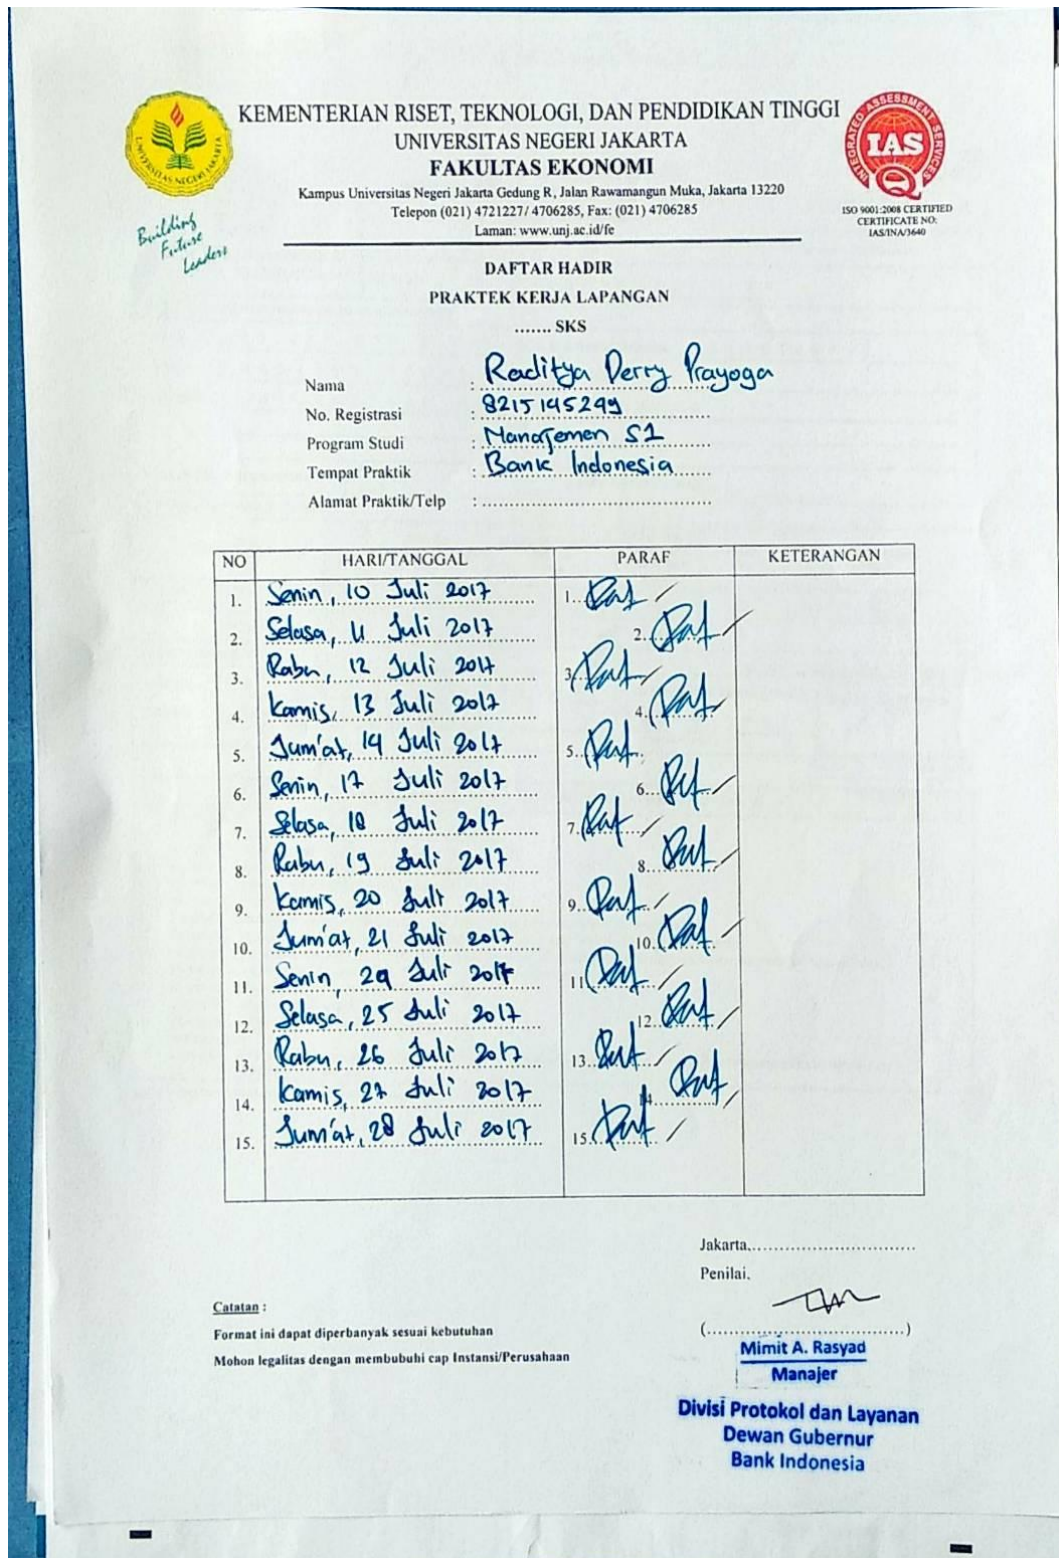 KEMENTERIAN RISET, TEKNOLOGI, DAN PENDIDIKAN TINGGI
UNIVERSITAS NEGERI JAKARTA
FAKULTAS EKONOMI
Kampus Universitas Negeri Jakarta Gedung R, Jalan Rawamangun Muka, Jakarta 13220
Telepon (021) 4721227/ 4706285, Fax: (021) 4706285
Laman: www.unj.ac.id/fe
UNIVERSITAS NEGERI JAKARTA
Building
Future
Leaders
INTEGRATED ASSESSMENT SERVICES
IAS
ISO 9001:2008 CERTIFIED
CERTIFICATE NO:
IAS/INA/3640
DAFTAR HADIR
PRAKTEK KERJA LAPANGAN
....... SKS
Nama : Raditya Derry Prayoga
No. Registrasi : 8215145249
Program Studi : Manajemen S1
Tempat Praktik : Bank Indonesia
Alamat Praktik/Telp : ........................................
NO HARI/TANGGAL PARAF KETERANGAN
1. Senin, 10 Juli 2017 1.
2. Selasa, 11 Juli 2017 2.
3. Rabu, 12 Juli 2017 3.
4. Kamis, 13 Juli 2017 4.
5. Jum'at, 14 Juli 2017 5.
6. Senin, 17 Juli 2017 6.
7. Selasa, 18 Juli 2017 7.
8. Rabu, 19 Juli 2017 8.
9. Kamis, 20 Juli 2017 9.
10. Jum'at, 21 Juli 2017 10.
11. Senin, 24 Juli 2017 11
12. Selasa, 25 Juli 2017 12.
13. Rabu, 26 Juli 2017 13.
14. Kamis, 27 Juli 2017 14
15. Jum'at, 28 Juli 2017 15.
Jakarta..............................
Penilai.
(...................................)
Mimit A. Rasyad
Manajer
Divisi Protokol dan Layanan
Dewan Gubernur
Bank Indonesia
Catatan :
Format ini dapat diperbanyak sesuai kebutuhan
Mohon legalitas dengan membubuhi cap Instansi/Perusahaan